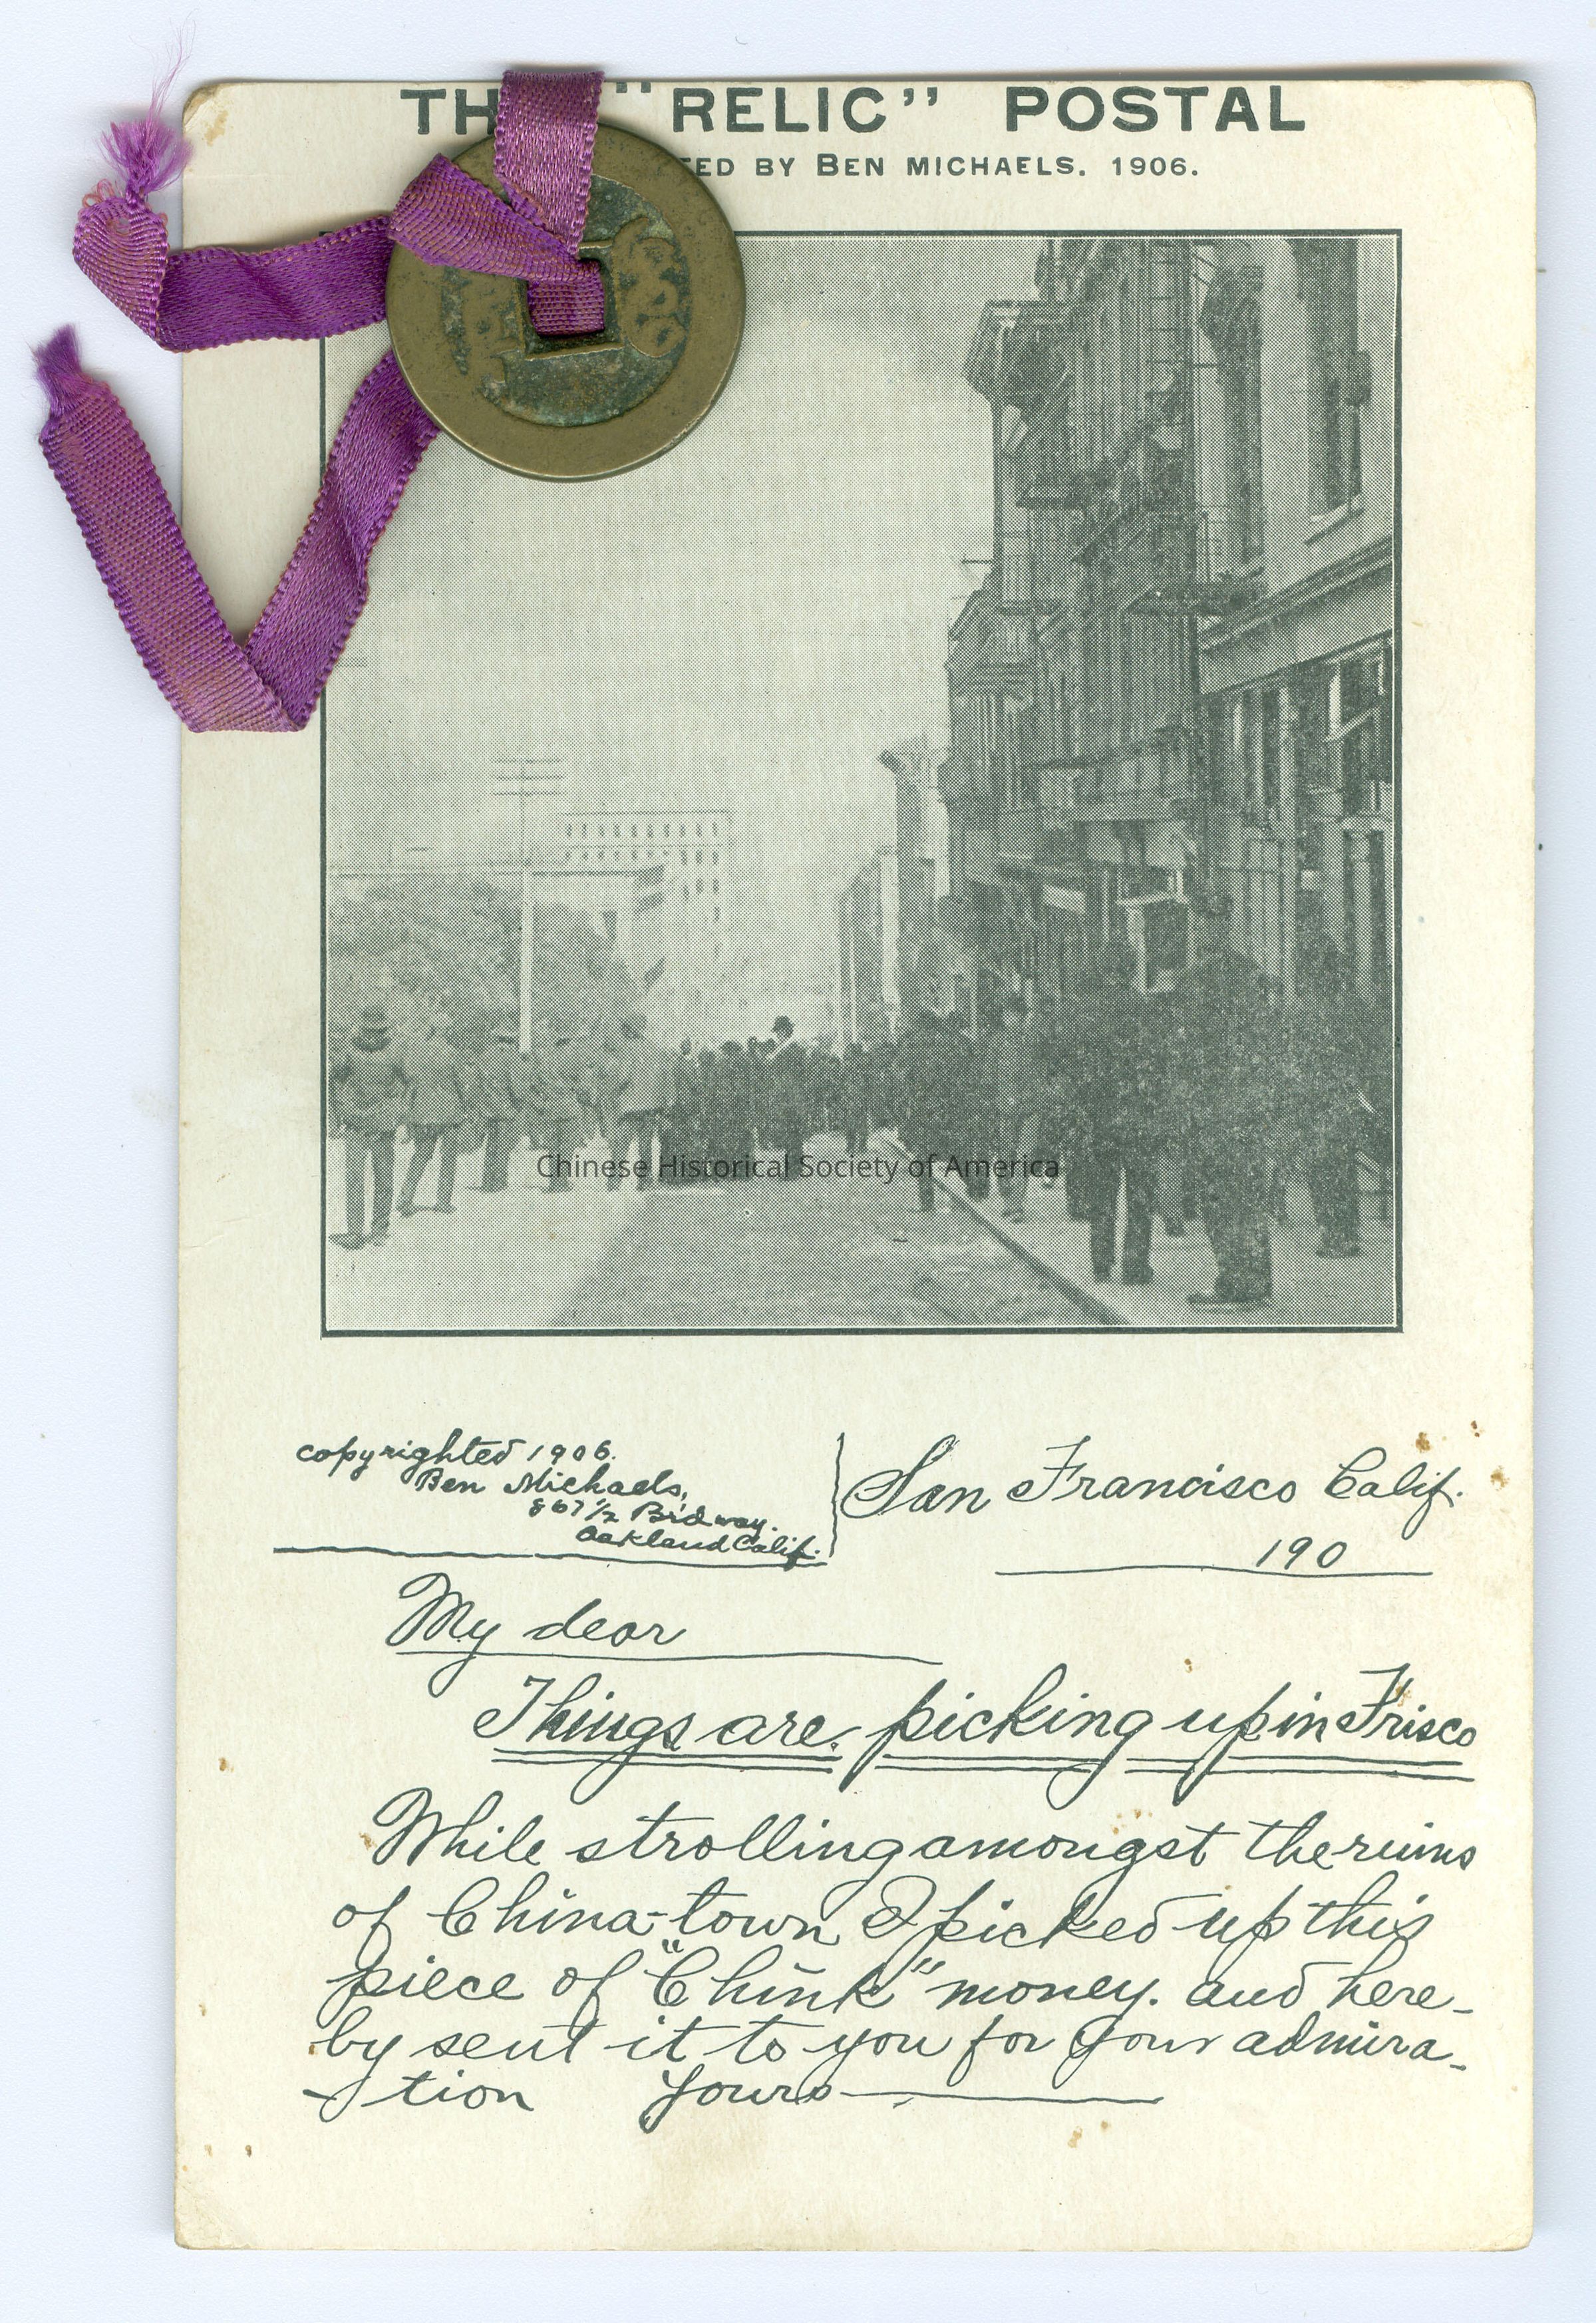 TH "RELIC" POSTAL
TED BY BEN MICHAELS. 1906.
Chinese Historical Society of America
copyrighted 1906.
Ben Michaels,
867 1/2 Brdway.
Oakland Calif.
San Francisco Calif.
190
My dear
Things are picking up in Frisco
While strolling amongst the ruins
of China-town I picked up this
piece of "Chink" money. and here-
by sent it to you for your admira-
tion Yours